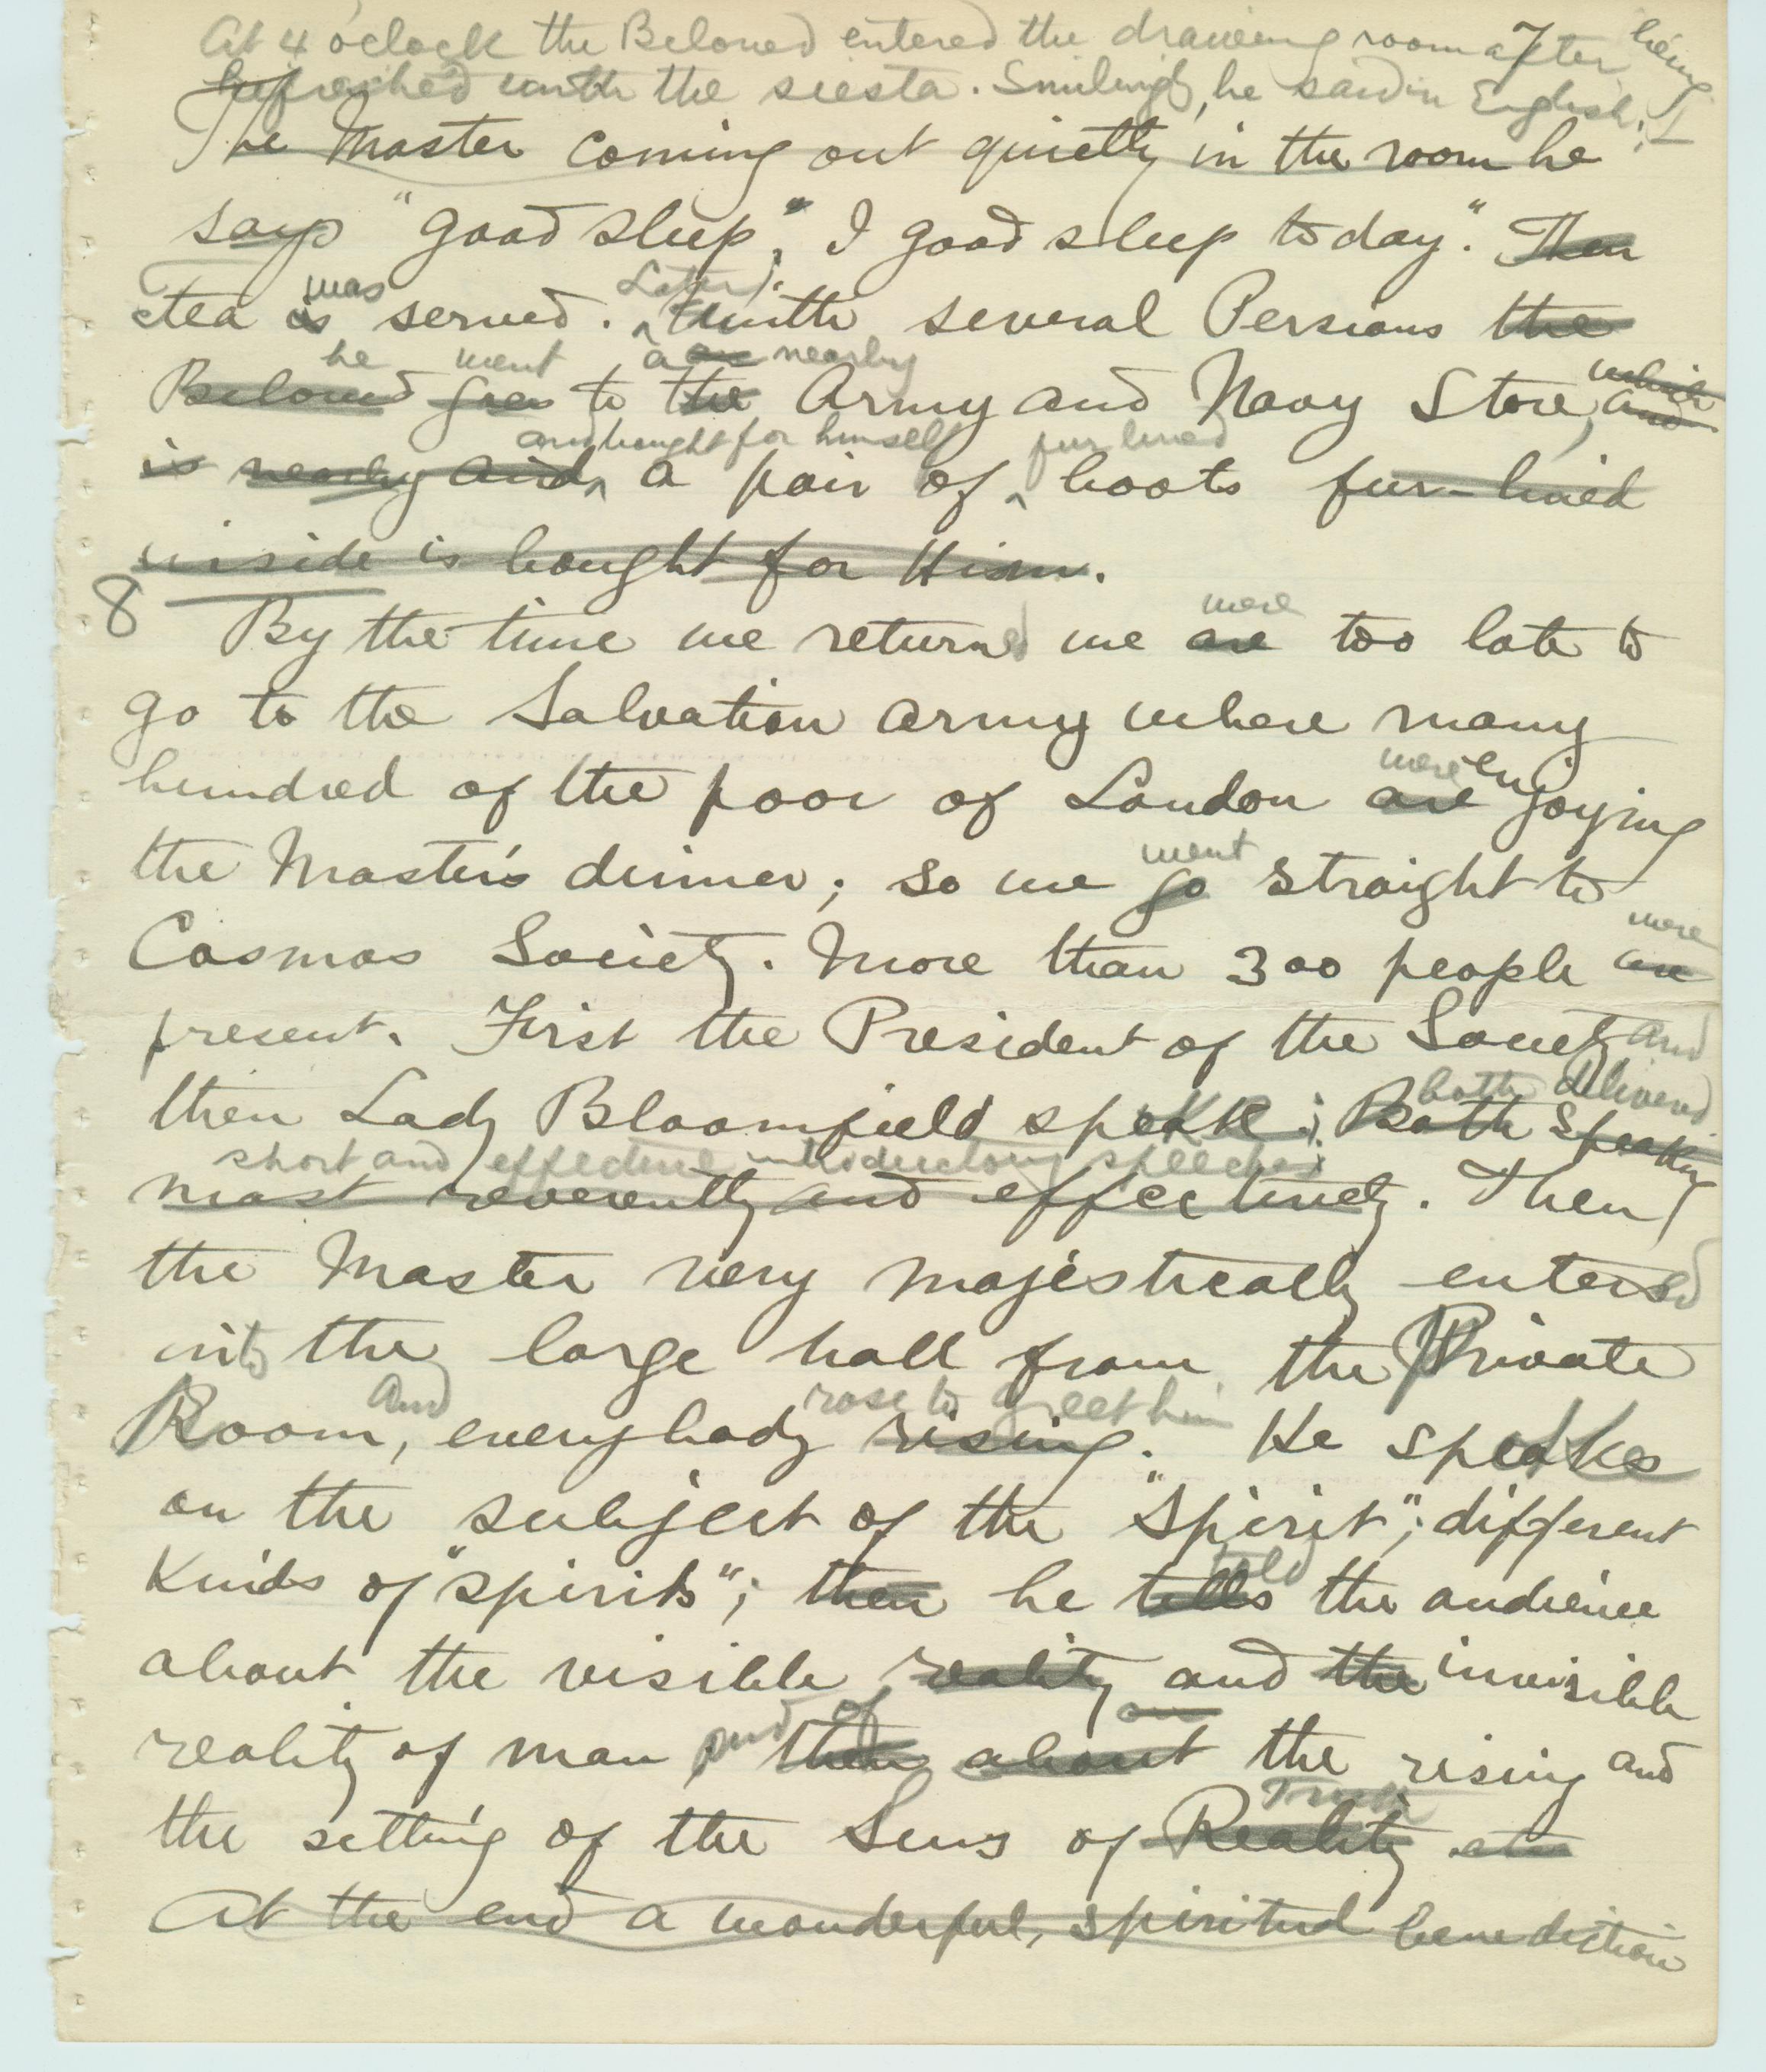 At 4 o'clock the Beloved entered the drawing room after being
refreshed with the siesta. Smilingly, he said in English: I
The Master coming out quietly in the room he
says "good sleep", I good sleep today". Then
Tea is was served. Later, With several Persians the
he went a nearby
Beloved goes to the Army and Navy Store, and which
and bought for himself fur lined
is nearby and, a pair of boots fur-lined
inside is bought for Him.
8 By the time we returned we are were too late to
go to the Salvation Army where many
hundred of the poor of London are were enjoying
the Master's dinner; so we go went straight to
Cosmos Society. More than 300 people are were
present. First the President of the Society and
then Lady Bloomfield spoke; Both speaking both delivered
short and effective introductory speeches
most reverently and effectively. Then
the Master very majestically entered
into the large hall from the Private
And rose to greet him
Room, everybody rising. He speaks
on the subject of the "Spirit"; different
kinds of "spirits"; then he tells told the audience
about the visible reality and the invisible
reality of man, and of then about the rising and
the setting of the Suns of Reality Truth etc
At the end a wonderful, spiritual benediction